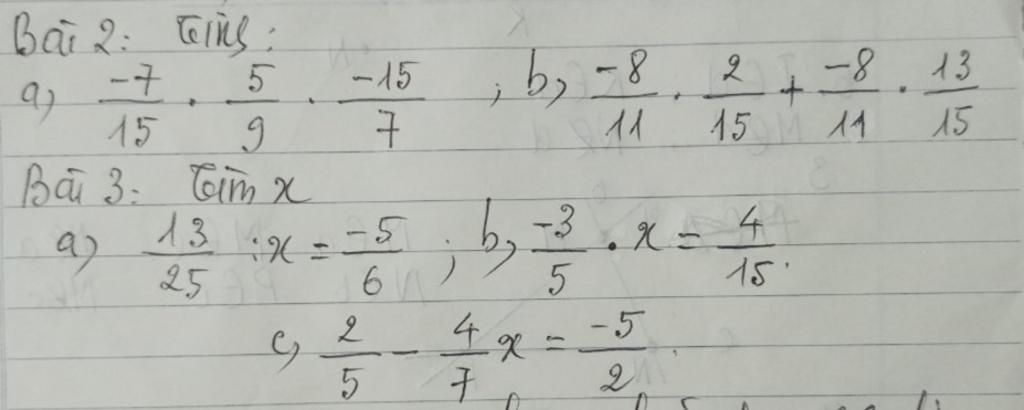 Bài 2: Tính:
a, -7/15 . 5/9 . -15/7 ; b, -8/11 . 2/15 + -8/11 . 13/15
Bài 3: Tìm x
a, 13/25 : x = -5/6 ; b, -3/5 . x = 4/15.
c, 2/5 - 4/7 x = -5/2.